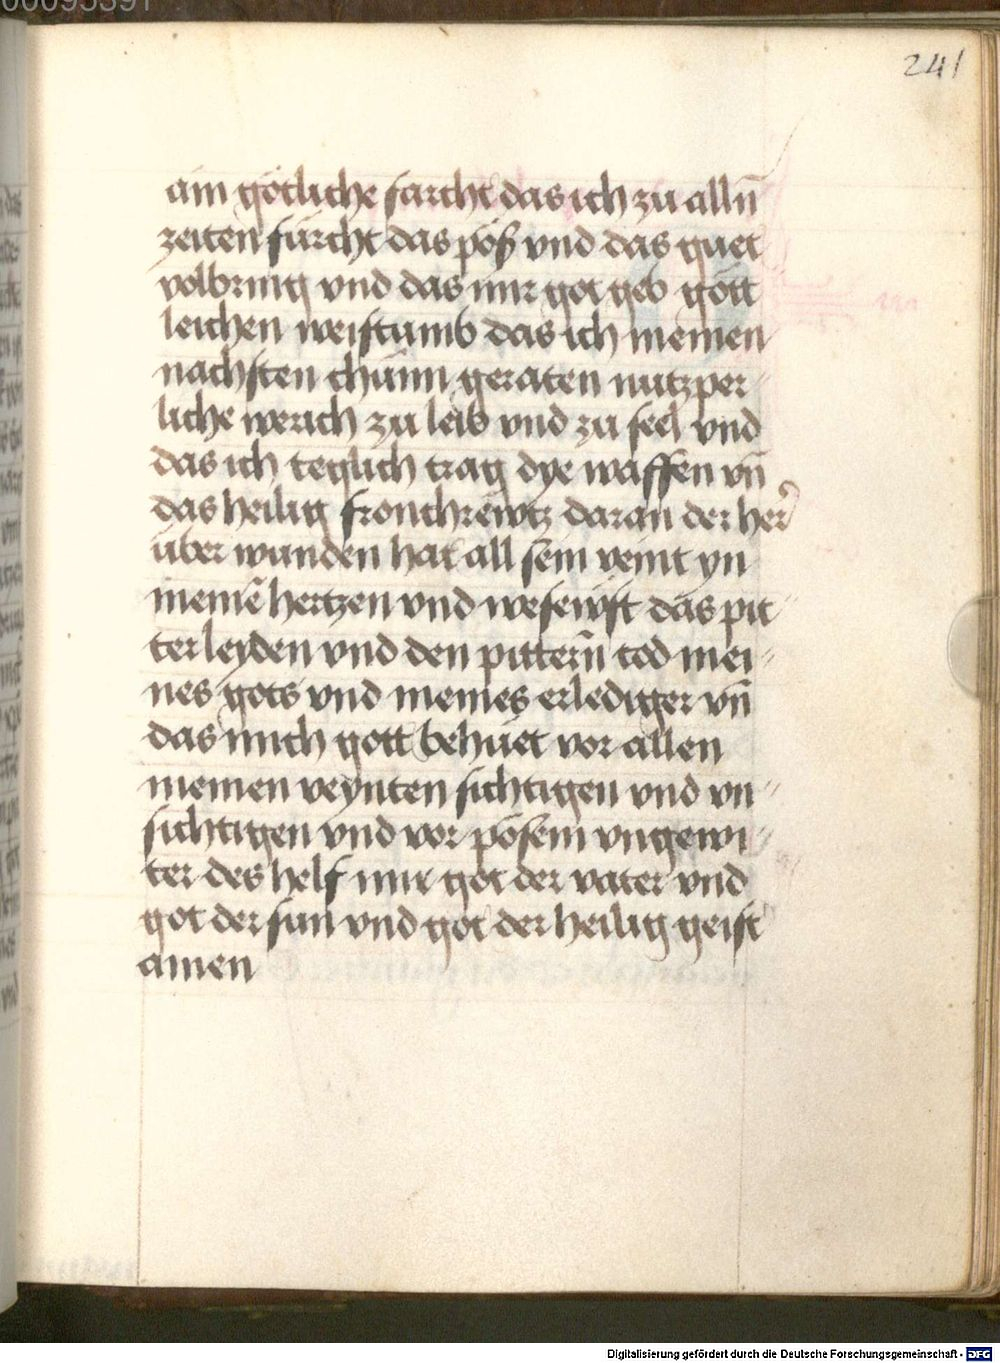 00095391
241
ain götliche farcht das ich zu alln̄
zeiten fürcht das pöß vnd das guet
volbring vnd das mir got geb gött
leichen weistumb das ich meinen
nachsten chünn geraten nutzper
liche werich zu leib vnd zu seel vnd
das ich teglich trag dye waffen vn̄
das heilig fronchrewtz daran der her̃
über wunden hat all sein veint yn
meinē hertzen vnd wesewft das pit
ter leyden vnd den pittern̄ tod mei
nes gots vnd meines erlediger vn̄
das mich gott behüet vor allen
meinen veynten sichtigen vnd vn
sichtigen vnd vor pösem vngewi
ter des helf mir got der vater vnd
got der sun vnd got der heilig geist
amen
Digitalisierung gefördert durch die Deutsche Forschungsgemeinschaft - DFG